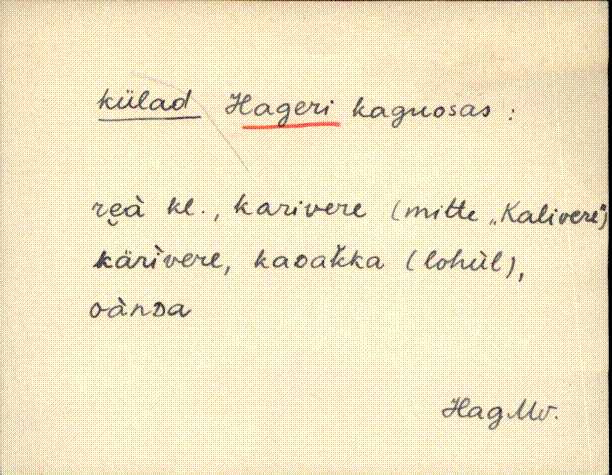 külad Hageri kaguosas :
re̮à kl., karivere (mitte „Kalivere")
kärìvere, kaᴅak̆ka (lohùl),
oànᴅa
Hag Mv.